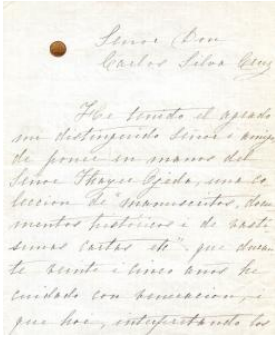 Señor Don
Carlos Silva Cruz
He tenido el agrado
mi distinguido señor i amigo
de poner en manos del
Señor Thayer Ojeda, una co
leccion de "manuscritos, docu
mentos históricos i de vasti
simas cartas etc" que duran
te veinte i cinco años he
cuidado con veneracion, i
que hoi, interpretando los